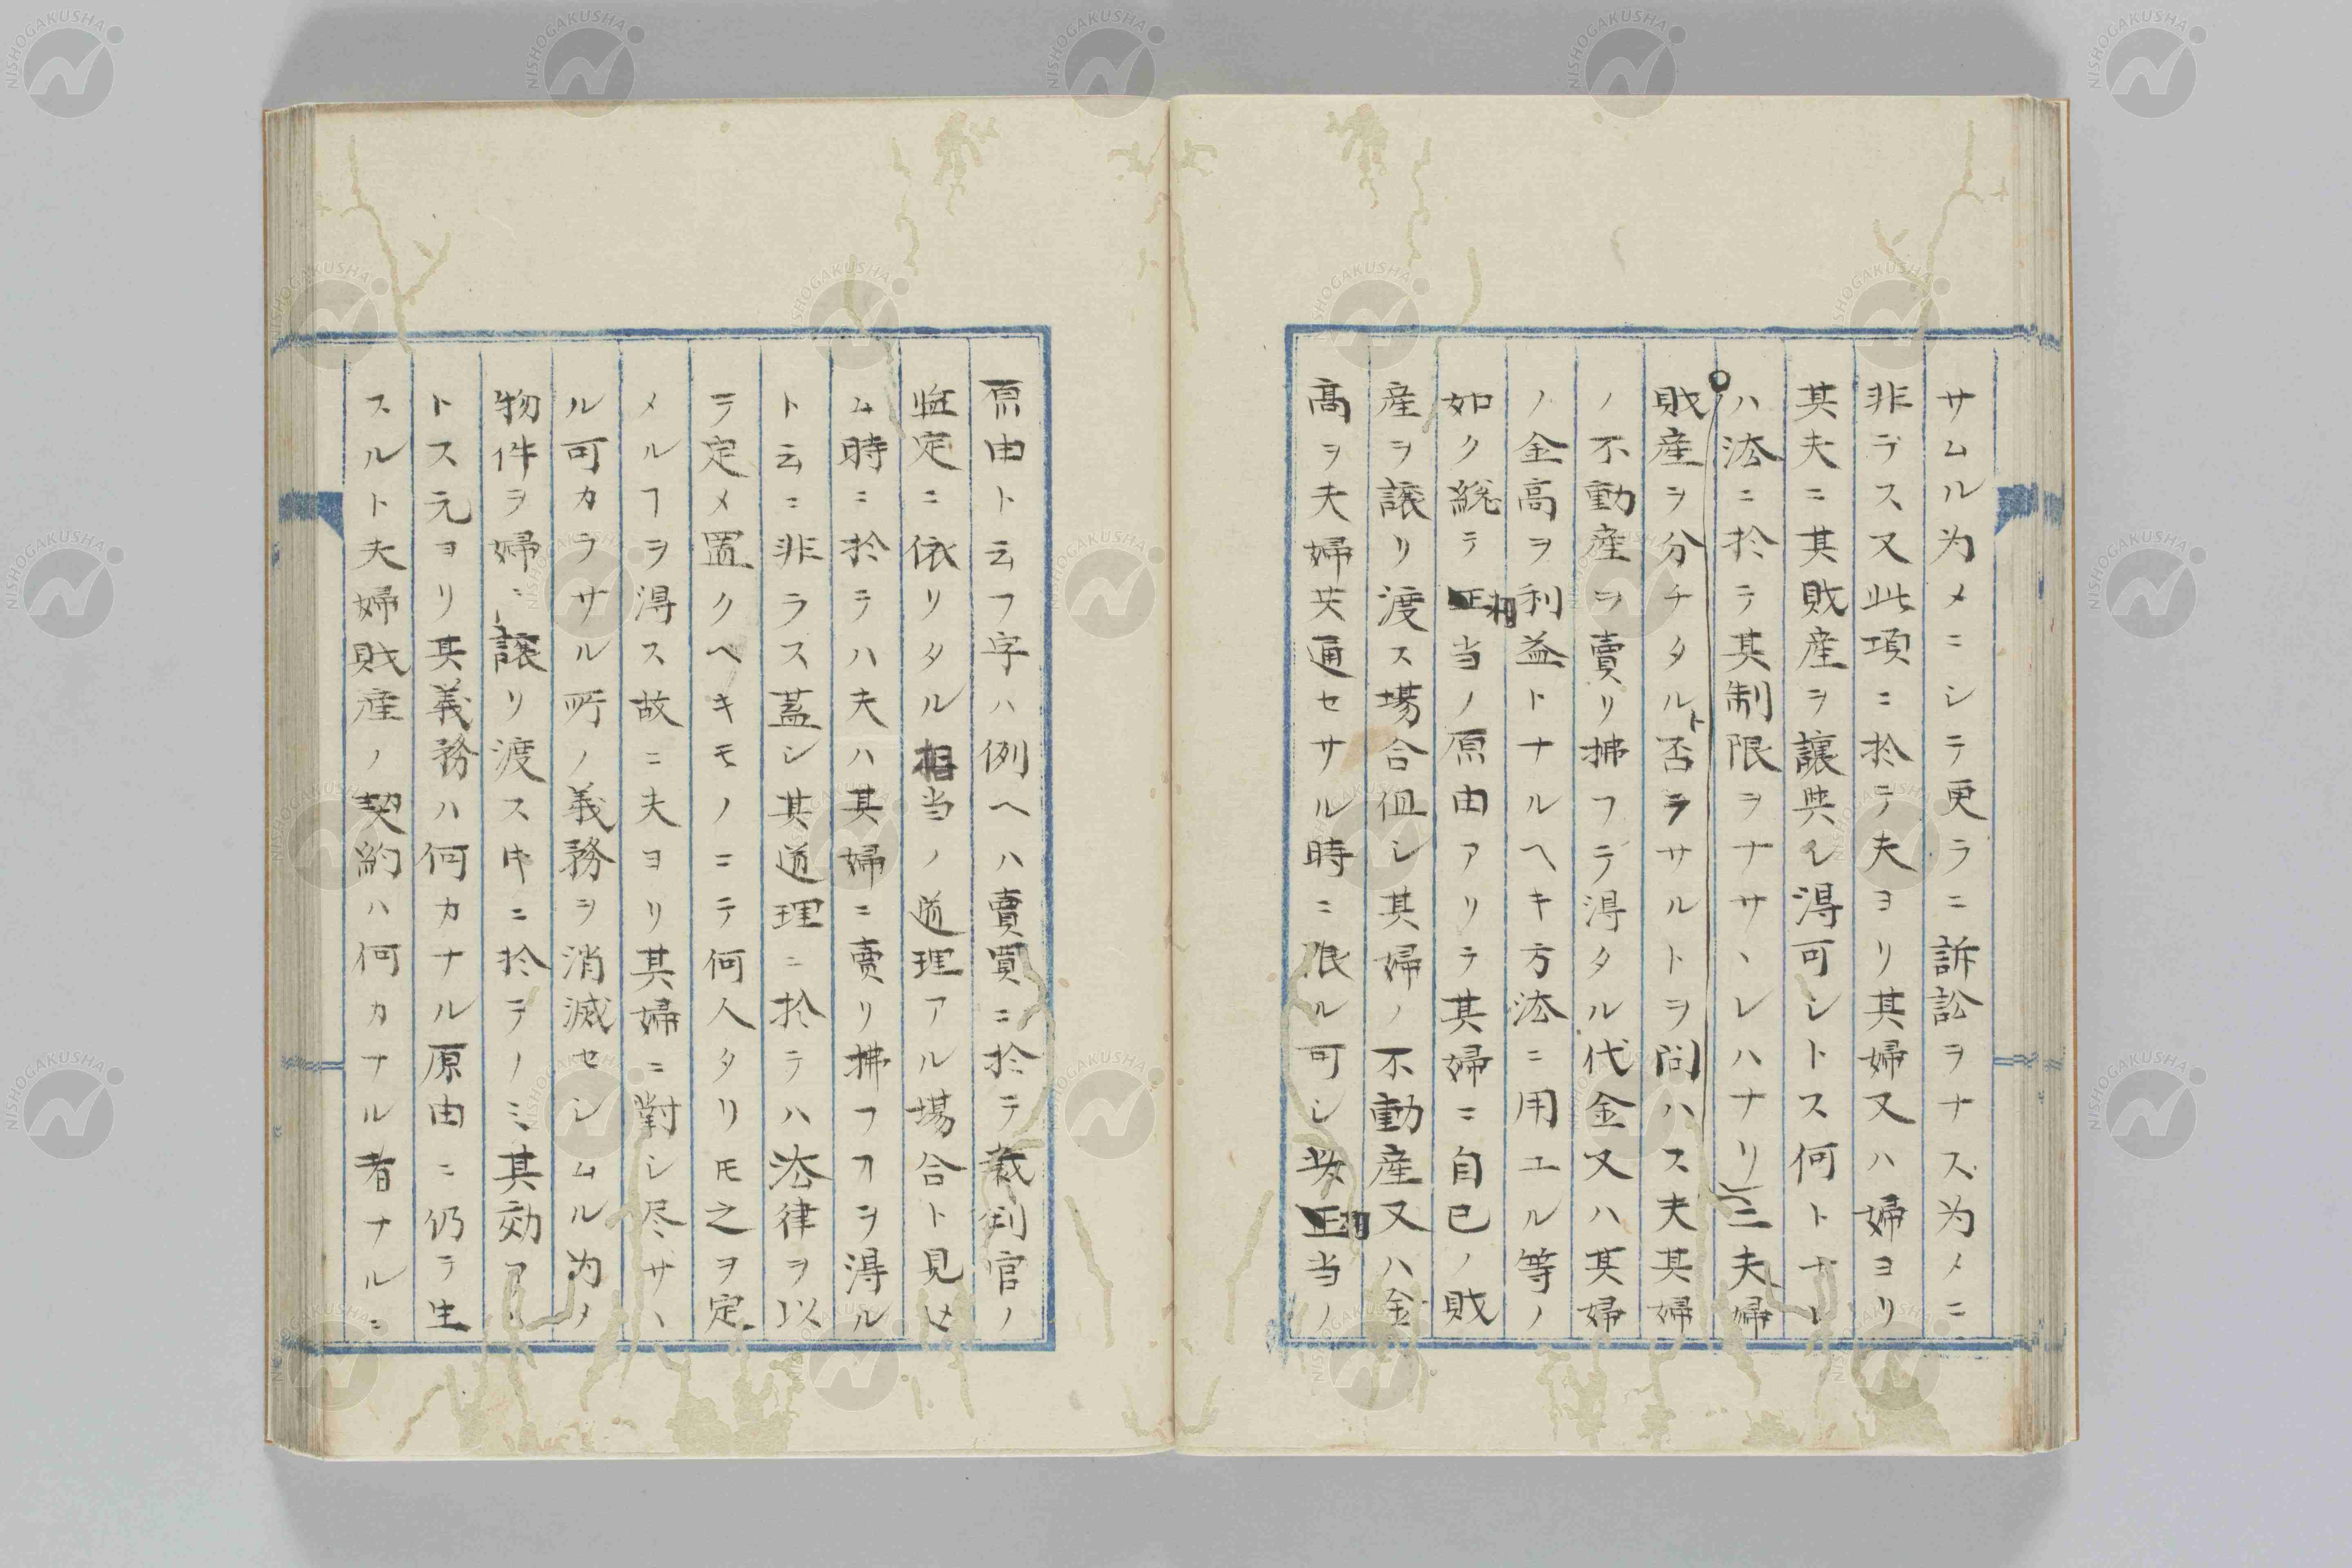 サムル为メニシテ更ラニ訴訟ヲナス为メニ
非ラス又此項ニ於テ夫ヨリ其婦又ハ婦ヨリ
其夫ニ其財産ヲ譲與シ得可シトス何トナレ
ハ法ニ於テ其制限ヲナサヽレハナリ三夫婦
財産ヲ分チタルト否ラサルトヲ問ハス夫其婦
ノ不動産ヲ賣リ拂フテ得タル代金又ハ其婦
ノ金高ヲ利益トナルヘキ方法ニ用エル等ノ
如ク総テ相当ノ原由アリテ其婦ニ自已ノ財
産ヲ譲リ渡ス場合但シ其婦ノ不動産又ハ金
高ヲ夫婦共通セサル時ニ限ル可シ玆相当ノ
原由ト云フ字ハ例ヘハ賣買ニ於テ裁判官ノ
監定ニ依リタル相当ノ道理アル場合ト見せ
ム時ニ於テハ夫ハ其婦ニ賣リ拂フヿヲ得ル
ト云ニ非ラス蓋シ其道理ニ於テハ法律ヲ以
テ定メ置クヘキモノニテ何人タリモ之ヲ定
メルヿヲ得ス故ニ夫ヨリ其婦ニ對シ尽サヽ
ル可カラサル所ノ義務ヲ消滅セシムル为ノ
物件ヲ婦ニ譲リ渡ス牛ニ於テノミ其効アリ
トス元ヨリ其義務ハ何カナル原由ニ仍テ生
スルト夫婦財産ノ契約ハ何カナル者ナルニ
NISHOGAKUSHA